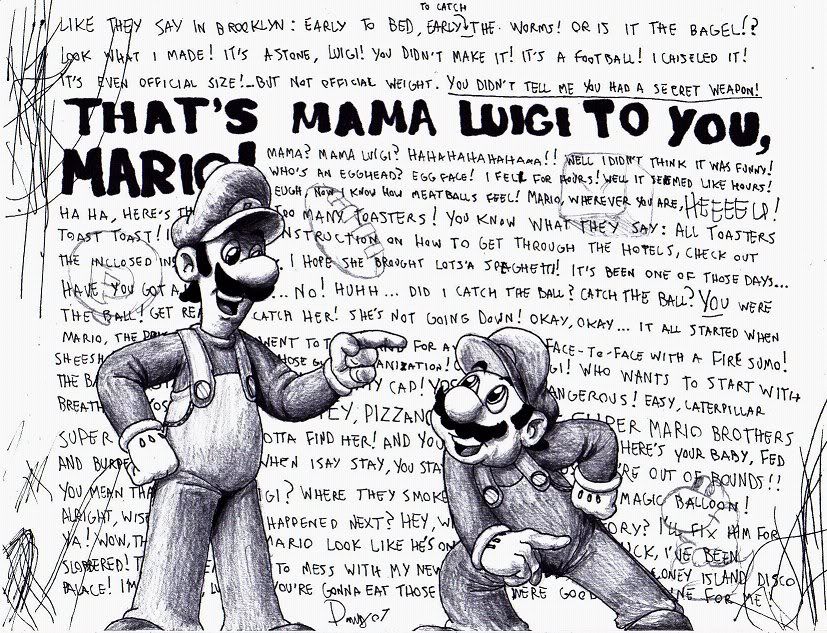 TO CATCH
LIKE THEY SAY IN BROOKLYN: EARLY TO BED, EARLY THE WORMS! OR IS IT THE BAGEL!?
LOOK WHAT I MADE! IT'S A STONE, LUIGI! YOU DIDN'T MAKE IT! IT'S A FOOTBALL! I CHISELED IT!
IT'S EVEN OFFICIAL SIZE!...BUT NOT OFFICIAL WEIGHT. YOU DIDN'T TELL ME YOU HAD A SECRET WEAPON!
THAT'S MAMA LUIGI TO YOU,
MARIO!
MAMA? MAMA LUIGI? HAHAHAHAHAHAHA!! WELL I DIDN'T THINK IT WAS FUNNY!
WHO'S AN EGGHEAD? EGG FACE! I FELL FOR HOURS! WELL IT SEEMED LIKE HOURS!
EUGH, NOW I KNOW HOW MEATBALLS FEEL! MARIO, WHEREVER YOU ARE, HEEEELP!
HA HA, HERE'S TOO MANY TOASTERS! YOU KNOW WHAT THEY SAY: ALL TOASTERS
TOAST TOAST! INSTRUCTION ON HOW TO GET THROUGH THE HOTELS, CHECK OUT
THE INCLOSED INS . I HOPE SHE BROUGHT LOTS'A SPAGHETTI! IT'S BEEN ONE OF THOSE DAYS...
HAVE YOU GOT A ...NO! HUHH... DID I CATCH THE BALL? CATCH THE BALL? YOU WERE
THE BALL! GET REA CATCH HER! SHE'S NOT GOING DOWN! OKAY, OKAY... IT ALL STARTED WHEN
MARIO, THE WENT TO T FOR A FACE-TO-FACE WITH A FIRE SUMO!
SHEESH HOSE G ANIZATION! GI! WHO WANTS TO START WITH
THE BA TY CAP! YOS ANGEROUS! EASY, CATERPILLAR
BREATH OS EY, PIZZANO SUPER MARIO BROTHERS
SUPER OTTA FIND HER! AND YOU HERE'S YOUR BABY, FED
AND BURPE WHEN I SAY STAY, YOU STA RE OUT OF BOUNDS!!
YOU MEAN THA IGI? WHERE THEY SMOKE MAGIC BALLOON!
ALRIGHT, WIS HAPPENED NEXT? HEY, W ORY? I'LL FIX HIM FOR
YA! WOW, TH MARIO LOOK LIKE HE'S O CK, I'VE BEEN
SLOBBERED! T TO MESS WITH MY NEW CONEY ISLAND DISCO
PALACE! I'M YOU'RE GONNA EAT THOSE WERE GOO INE FOR ME!